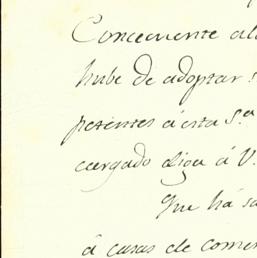 Concecuente a la
hube de adoptar
petentes á esta S.ª
cargado diga á V.
Que há sa
á casas de comer